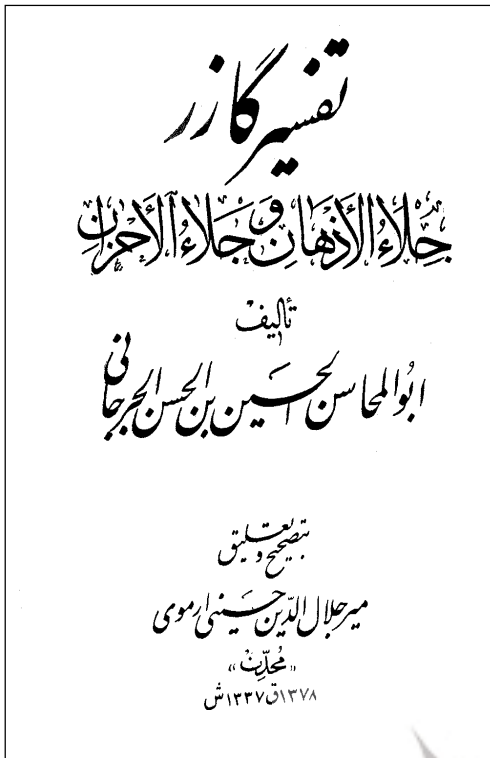 تفسیر گازر
جِلَاءُ الْأَذْهَانِ وَ جَلَاءُ الْأَحْزَانِ
تألیف
ابوالمحاسن الحسین بن الحسن الجرجانی
بتصحیح و تعلیق
میر جلال الدّین حسینی ارموی
«محدّث»
۱۳۷۸ق ۱۳۳۷ش